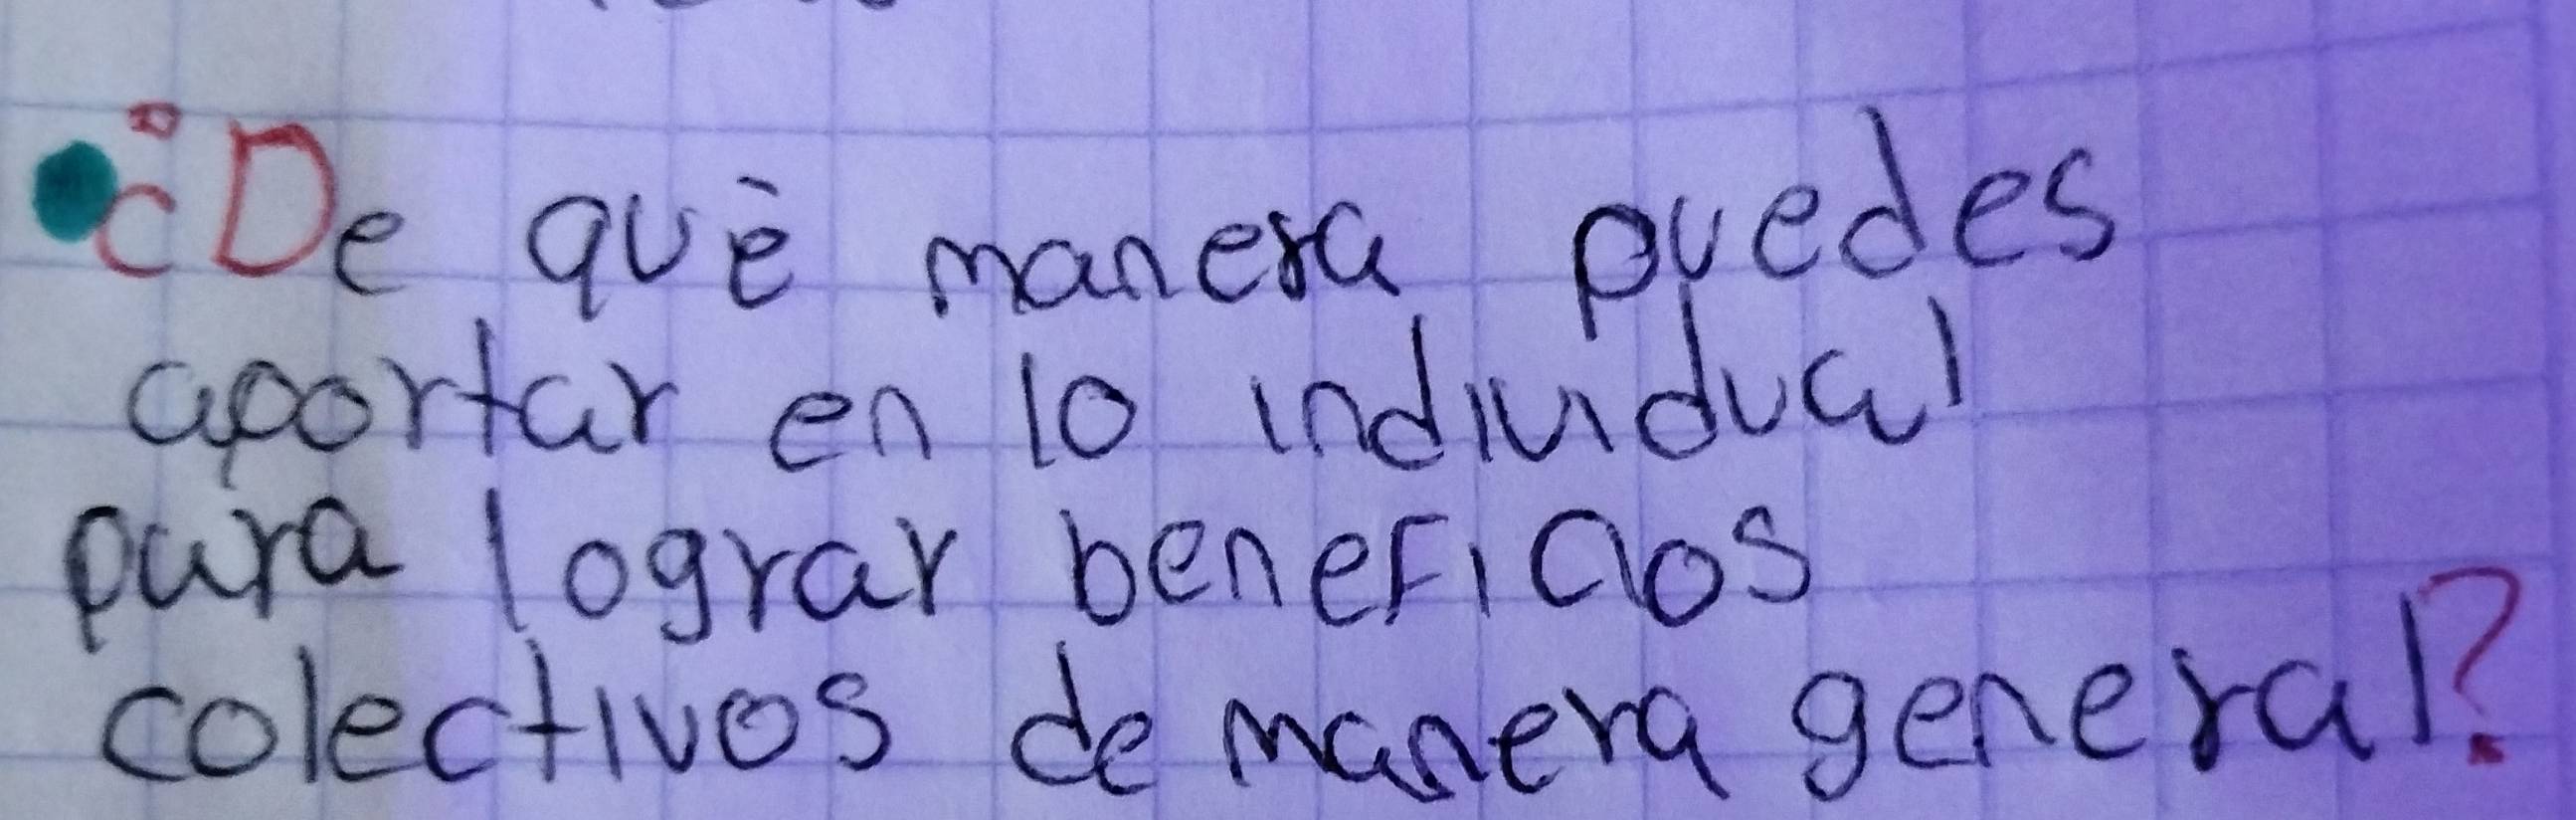 ¿De què manera puedes
aportar en lo individual
para lograr beneficios
colectivos de manera general?